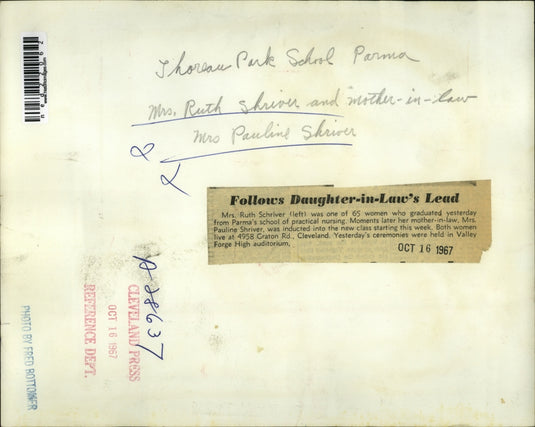 Thoreau Park School Parma
Mrs. Ruth Shriver and mother-in-law
Mrs Pauline Shriver
Follows Daughter-in-Law's Lead
Mrs. Ruth Schriver (left) was one of 65 women who graduated yesterday
from Parma's school of practical nursing. Moments later her mother-in-law, Mrs.
Pauline Shriver, was inducted into the new class starting this week. Both women
live at 4958 Graton Rd., Cleveland. Yesterday's ceremonies were held in Valley
Forge High auditorium.
OCT 16 1967
A-28637
CLEVELAND PRESS
OCT 16 1967
REFERENCE DEPT.
PHOTO BY FRED BOTTOMER